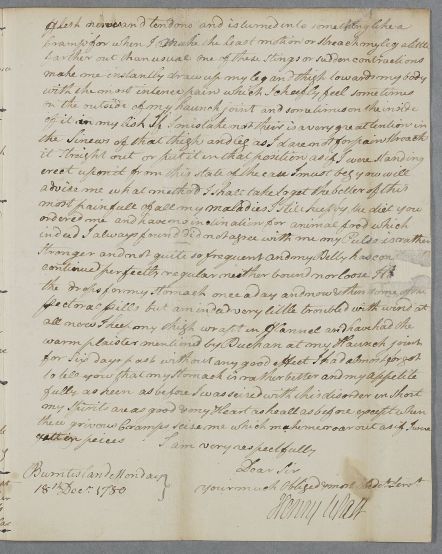 flesh nerves and tendons and is turned into something like a
Cramp for when I make the least motion or streach my leg a little
farther out than usual one of these Stings or sudden contractions
make me instantly draw up my leg and thigh towards my body
with the most intence pain which I cheefly feel sometimes
on the outside of my haunch joint and sometimes on the inside
of it in my lisk If I mistake not their is a very great tention in
the Sinews of that thigh and leg as I dare not for pain streach
it straight out or put it in that position as if I were standing
erect upon it from this state of the case I must beg you will
advise me what method I shall take to get the better of this
most painfull of all my maladies I still keep by the diet you
ordered me and have no inclination for animal food which
indeed I always found did not agree with me my Pulse is rather
stronger and not quite so frequent and my Belly has con
continued perfectly regular neither bound nor loose
the drops for my Stomach once a day and now & then some of the
pectoral pills but am indeed very little troubled with wind at
all now I keep my thigh wrapt in flannel and have had the
warm plaister mentioned by Buchan at my Haunch joint
for Six days past without any good effect I had almost forgot
to tell you that my Stomach is rather better and my appetite
fully as keen as before I was seized with this disorder in short
my Spirits are as good & my Heart as heall as before except when
these grivous Cramps seize me which make me roar out as if I were
in peices I am very respectfully
Dear Sir
Burntisland Monday
your much Obliged & most Obedt. Servt.
18th Decr. 1780
Henry